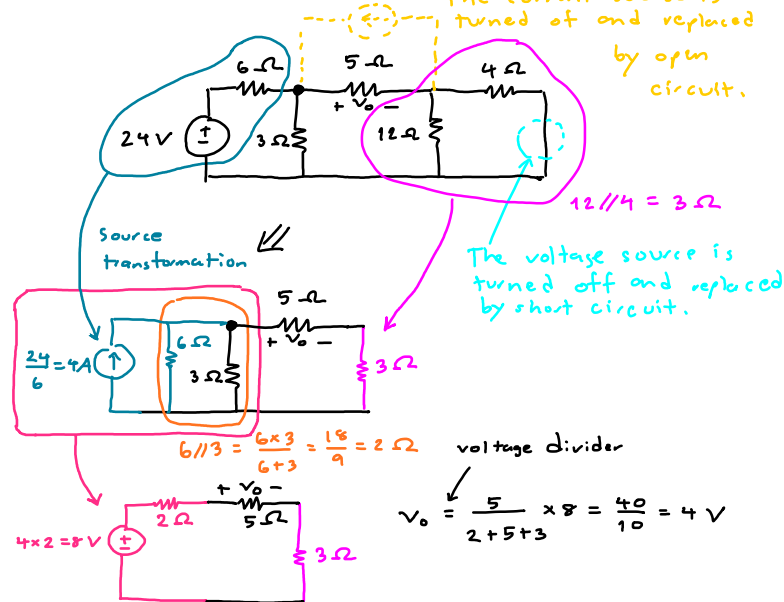 turned of and replaced
by open
circuit.
6 Ω
5 Ω
4 Ω
+ v₀ -
24 V
3 Ω
12 Ω
12//4 = 3 Ω
Source
transformation
The voltage source is
turned off and replaced
by short circuit.
5 Ω
+ v₀ -
24/6 = 4A
6 Ω
3 Ω
3 Ω
6//3 = 6×3/6+3 = 18/9 = 2 Ω
voltage divider
v₀ = 5/2+5+3 × 8 = 40/10 = 4 V
+ v₀ -
2 Ω
5 Ω
4×2 = 8 V
3 Ω